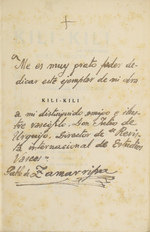 Me es muy grato poder de-
dicar este ejemplar de mi obra
KILI-KILI
a mi distinguido amigo e ilus-
tre Don Julio de
Urquijo, Director de la Revis-
ta internacional de Estudios
Vascos
Pablo de Zamarripa